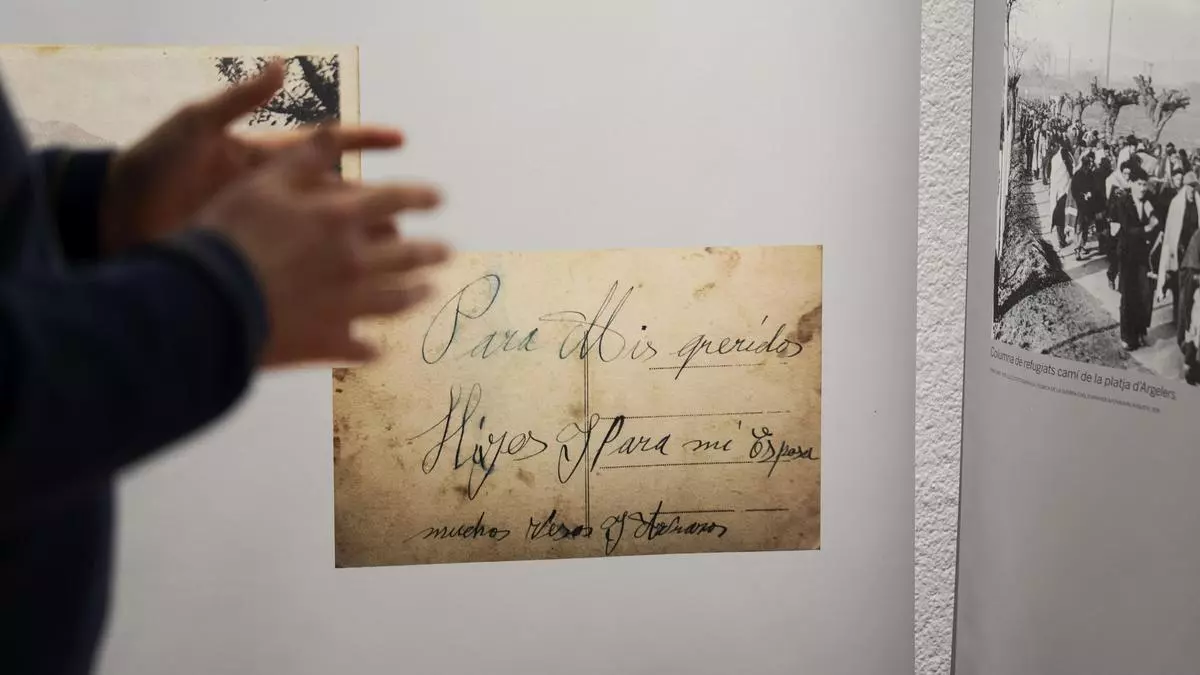 Para Mis queridos
Hijos Y Para mi Esposa
muchos Vesos Y Abrazos
Columna de refugiats camí de la platja d'Argelers.